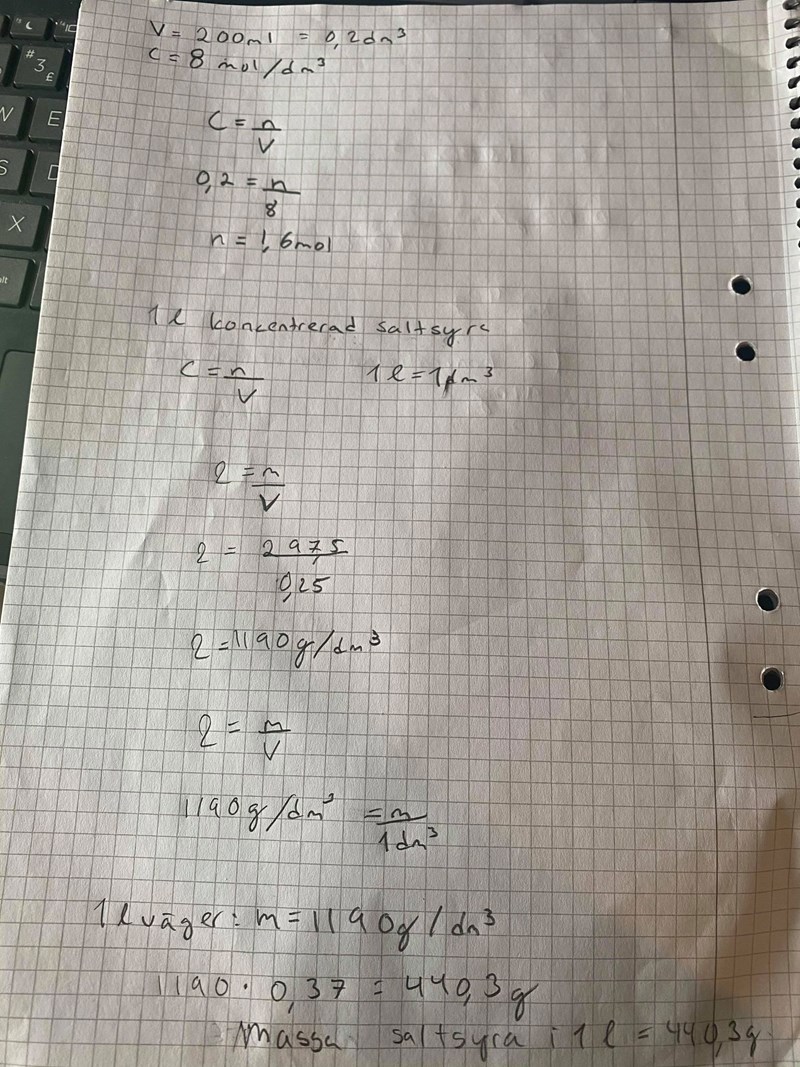 V = 200ml = 0,2dm³
C = 8 mol/dm³
C = n/V
0,2 = n/8
n = 1,6mol
1 l koncentrerad saltsyra
C = n/V 1 l = 1dm³
ρ = m/V
ρ = 297,5/0,25
ρ = 1190g/dm³
ρ = m/V
1190g/dm³ = m/1dm³
1 l väger: m = 1190g/dm³
1190 · 0,37 = 440,3g
Massa saltsyra i 1 l = 440,3g